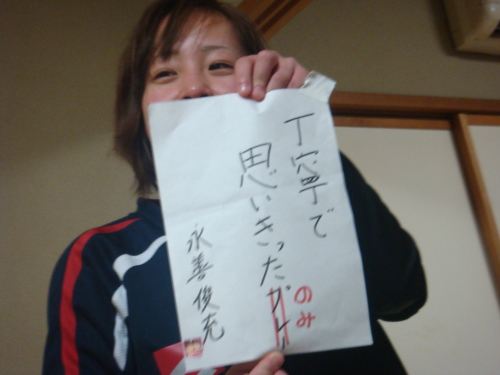 丁寧で
思いきった
のみ
永善俊充